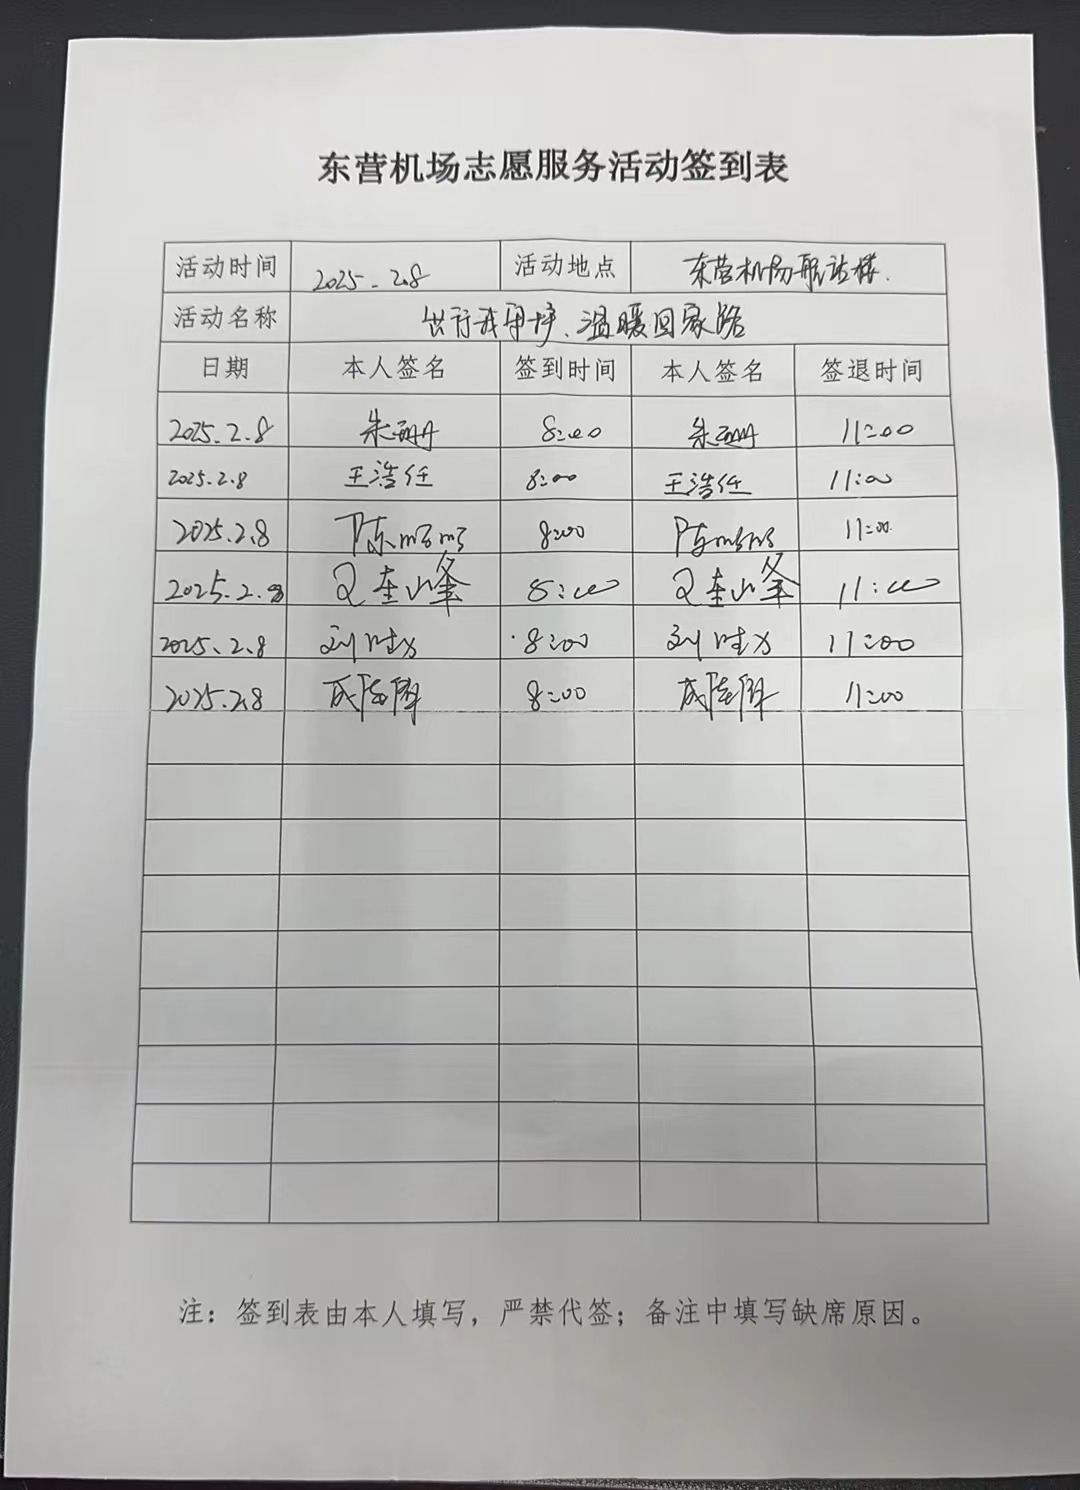 东营机场志愿服务活动签到表
活动时间 2025.2.8 活动地点 东营机场航站楼.
活动名称 出行我守护、温暖回家路
日期 本人签名 签到时间 本人签名 签退时间
2025.2.8 朱珊珊 8:00 朱珊珊 11:00
2025.2.8 王浩任 8:00 王浩任 11:00
2025.2.8 陈 8:00 陈 11:00
2025.2.8 8:00 11:00
2025.2.8 刘 8:00 刘 11:00
2025.2.8 8:00 11:00
注：签到表由本人填写，严禁代签；备注中填写缺席原因。